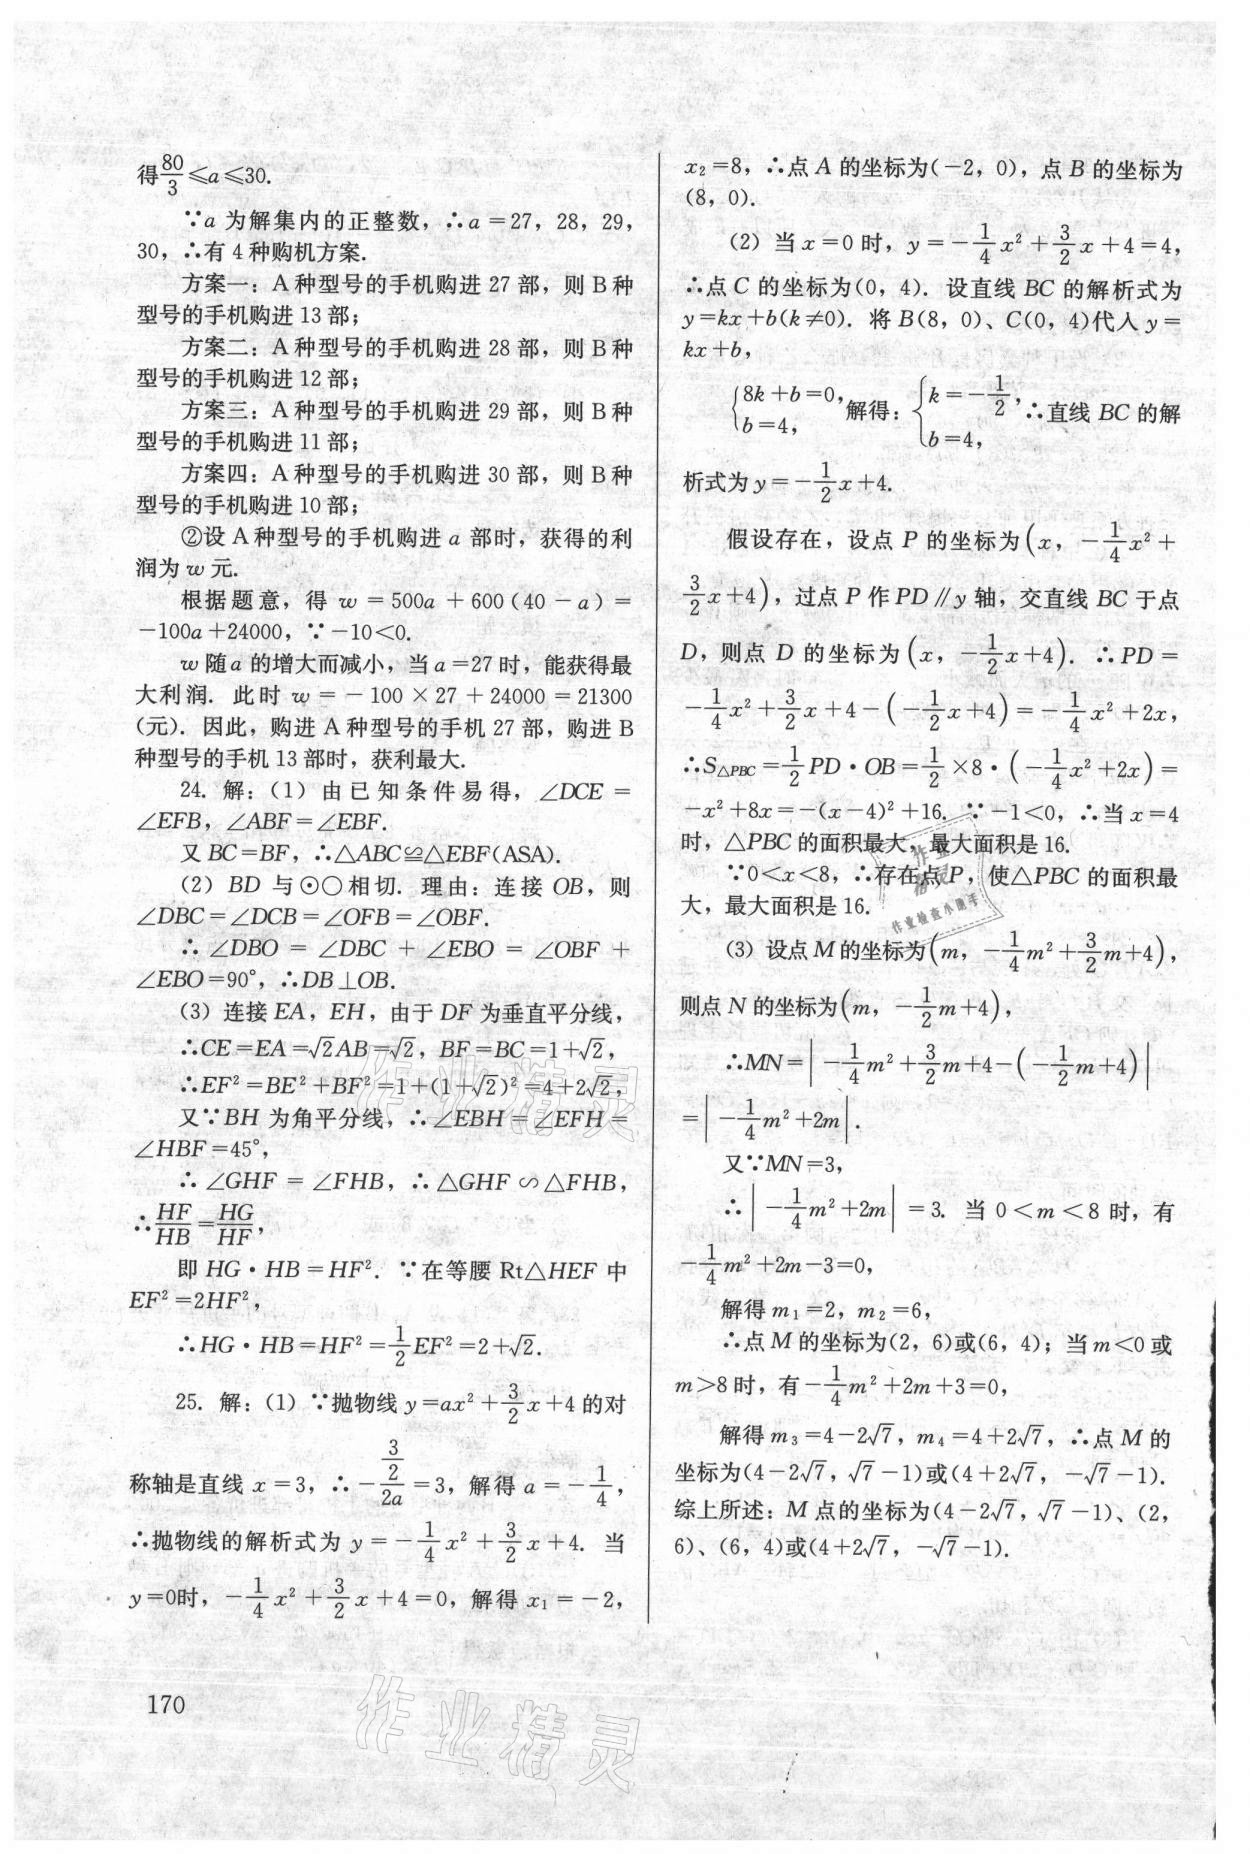 得80/3≤a≤30.
∵a 为解集内的正整数，∴a=27，28，29，
30，∴有 4 种购机方案.
方案一：A 种型号的手机购进 27 部，则 B 种
型号的手机购进 13 部；
方案二：A 种型号的手机购进 28 部，则 B 种
型号的手机购进 12 部；
方案三：A 种型号的手机购进 29 部，则 B 种
型号的手机购进 11 部；
方案四：A 种型号的手机购进 30 部，则 B 种
型号的手机购进 10 部；
②设 A 种型号的手机购进 a 部时，获得的利
润为 w 元.
根据题意，得 w = 500a + 600 (40 - a) =
-100a+24000，∵-10<0.
w 随 a 的增大而减小，当 a=27 时，能获得最
大利润. 此时 w = - 100 × 27 + 24000 = 21300
(元). 因此，购进 A 种型号的手机 27 部，购进 B
种型号的手机 13 部时，获利最大.
24. 解：(1) 由已知条件易得，∠DCE =
∠EFB，∠ABF=∠EBF.
又 BC=BF，∴△ABC≌△EBF(ASA).
(2) BD 与⊙○相切. 理由：连接 OB，则
∠DBC=∠DCB=∠OFB=∠OBF.
∴ ∠DBO = ∠DBC + ∠EBO = ∠OBF +
∠EBO=90°，∴DB⊥OB.
(3) 连接 EA，EH，由于 DF 为垂直平分线，
∴CE=EA=√2AB=√2，BF=BC=1+√2，
∴EF²=BE²+BF²=1+(1+√2)²=4+2√2，
又∵BH 为角平分线，∴∠EBH=∠EFH=
∠HBF=45°，
∴ ∠GHF = ∠FHB，∴ △GHF ∽ △FHB，
∴HF/HB=HG/HF，
即 HG·HB=HF². ∵在等腰 Rt△HEF 中
EF²=2HF²，
∴HG·HB=HF²=1/2EF²=2+√2.
25. 解：(1) ∵抛物线 y=ax²+3/2x+4 的对
称轴是直线 x=3，∴-(3/2)/2a=3，解得 a=-1/4，
∴抛物线的解析式为 y=-1/4x²+3/2x+4. 当
y=0时，-1/4x²+3/2x+4=0，解得 x₁=-2，
170
x₂=8，∴点 A 的坐标为(-2，0)，点 B 的坐标为
(8，0).
(2) 当 x=0 时，y=-1/4x²+3/2x+4=4，
∴点 C 的坐标为(0，4). 设直线 BC 的解析式为
y=kx+b(k≠0). 将 B(8，0)、C(0，4)代入 y=
kx+b，
{8k+b=0，b=4，解得：{k=-1/2，b=4，∴直线 BC 的解
析式为 y=-1/2x+4.
假设存在，设点 P 的坐标为(x，-1/4x²+
3/2x+4)，过点 P 作 PD∥y 轴，交直线 BC 于点
D，则点 D 的坐标为(x，-1/2x+4). ∴PD=
-1/4x²+3/2x+4-(-1/2x+4)=-1/4x²+2x，
∴S△PBC=1/2PD·OB=1/2×8·(-1/4x²+2x)=
-x²+8x=-(x-4)²+16. ∵-1<0，∴当 x=4
时，△PBC 的面积最大，最大面积是 16.
∵0<x<8，∴存在点 P，使△PBC 的面积最
大，最大面积是 16.
(3) 设点 M 的坐标为(m，-1/4m²+3/2m+4)，
则点 N 的坐标为(m，-1/2m+4)，
∴MN=|-1/4m²+3/2m+4-(-1/2m+4)|
=|-1/4m²+2m|.
又∵MN=3，
∴|-1/4m²+2m|=3. 当 0<m<8 时，有
-1/4m²+2m-3=0，
解得 m₁=2，m₂=6，
∴点 M 的坐标为(2，6)或(6，4)；当 m<0 或
m>8 时，有-1/4m²+2m+3=0，
解得 m₃=4-2√7，m₄=4+2√7，∴点 M 的
坐标为(4-2√7，√7-1)或(4+2√7，-√7-1).
综上所述：M 点的坐标为(4-2√7，√7-1)、(2，
6)、(6，4)或(4+2√7，-√7-1).
作业精灵
作业精灵
作业精灵
作业检查小助手